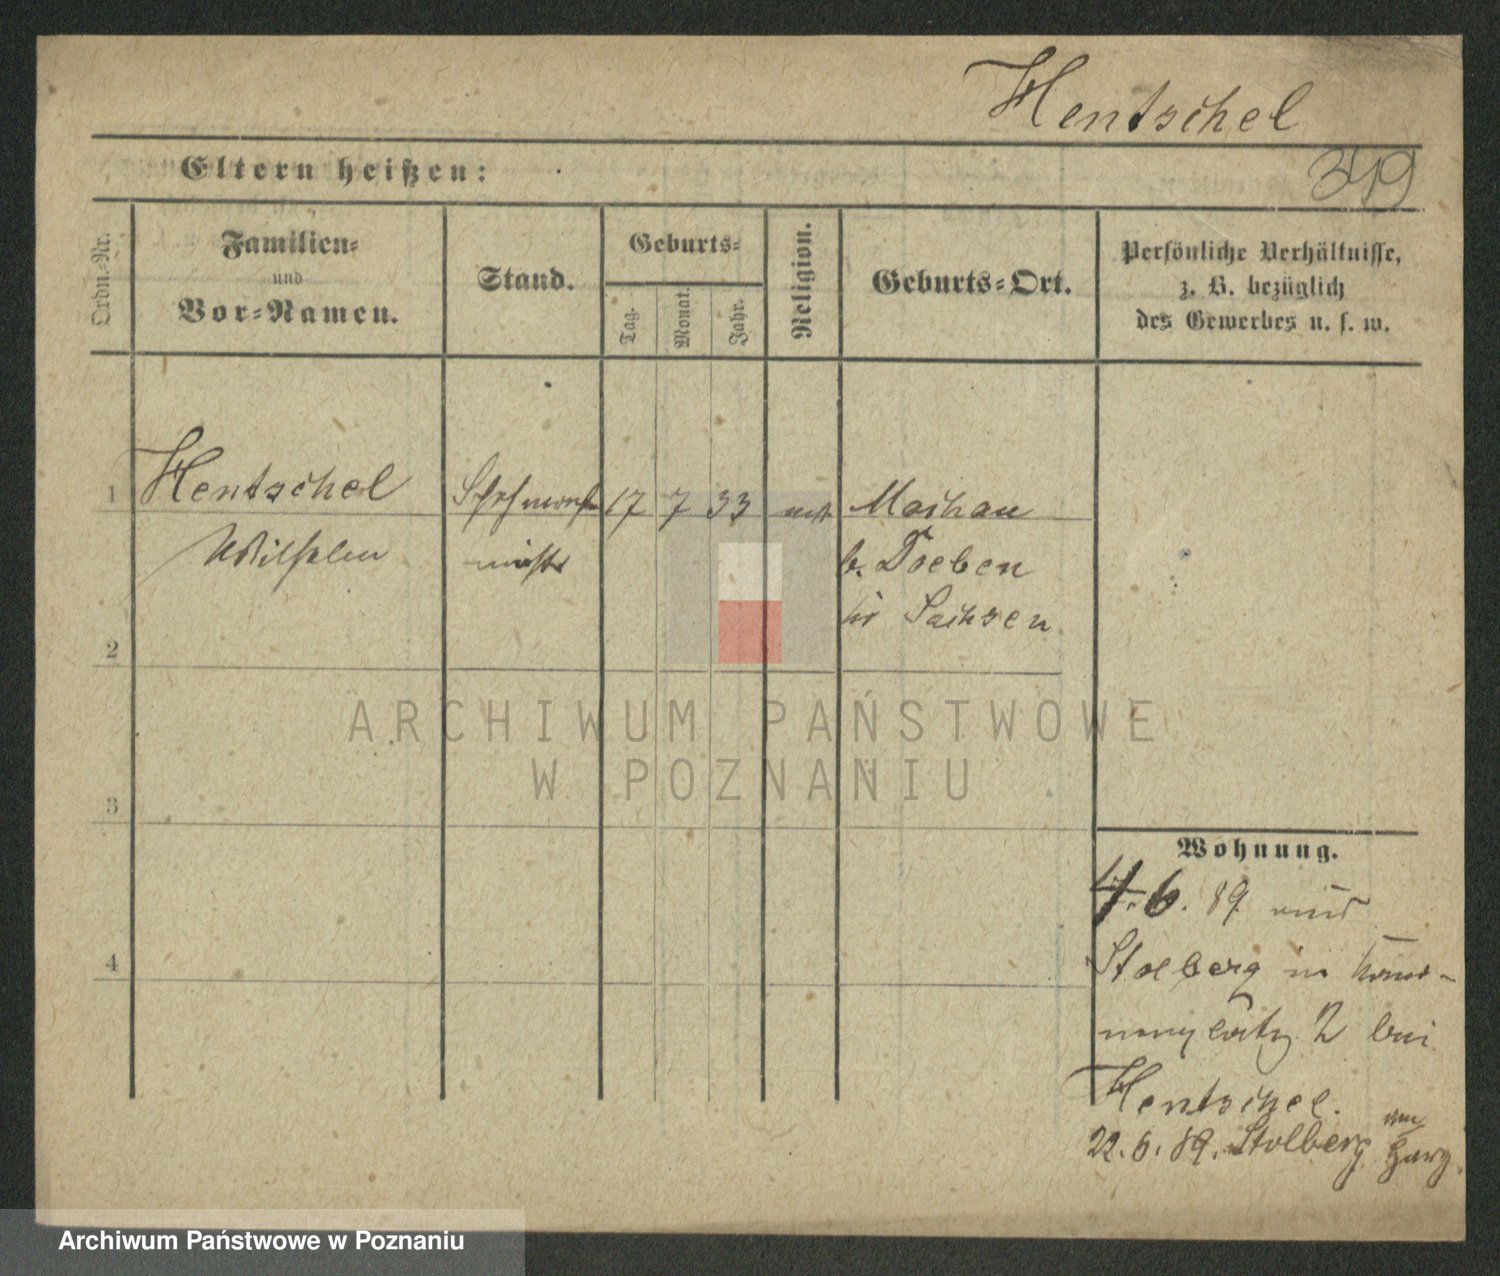 Hentschel
349
Eltern heißen:
Ordn.-Nr.
Familien-
und
Vor-Namen.
Stand.
Geburts-
Tag.
Monat.
Jahr.
Religion.
Geburts-Ort.
Persönliche Verhältnisse,
z. B. bezüglich
des Gewerbes u. s. w.
1
Hentschel
17 7 33
b.
Wilhelm
Sachsen
2
3
4
ARCHIWUM PAŃSTWOWE
W POZNANIU
Wohnung.
6. 89
Stolberg in
2 bei
Hentschel.
22. 6. 89. Stolberg am Harz
Archiwum Państwowe w Poznaniu